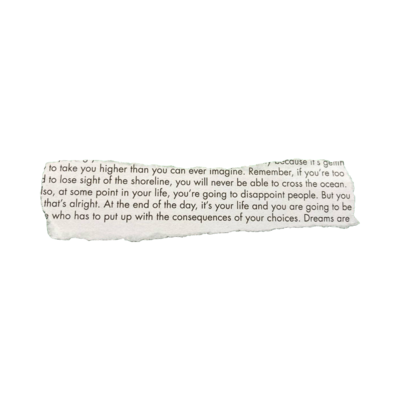 because it's
to take you higher than you can ever imagine. Remember, if you're too
to lose sight of the shoreline, you will never be able to cross the ocean.
so, at some point in your life, you're going to disappoint people. But you
that's alright. At the end of the day, it's your life and you are going to be
who has to put up with the consequences of your choices. Dreams are